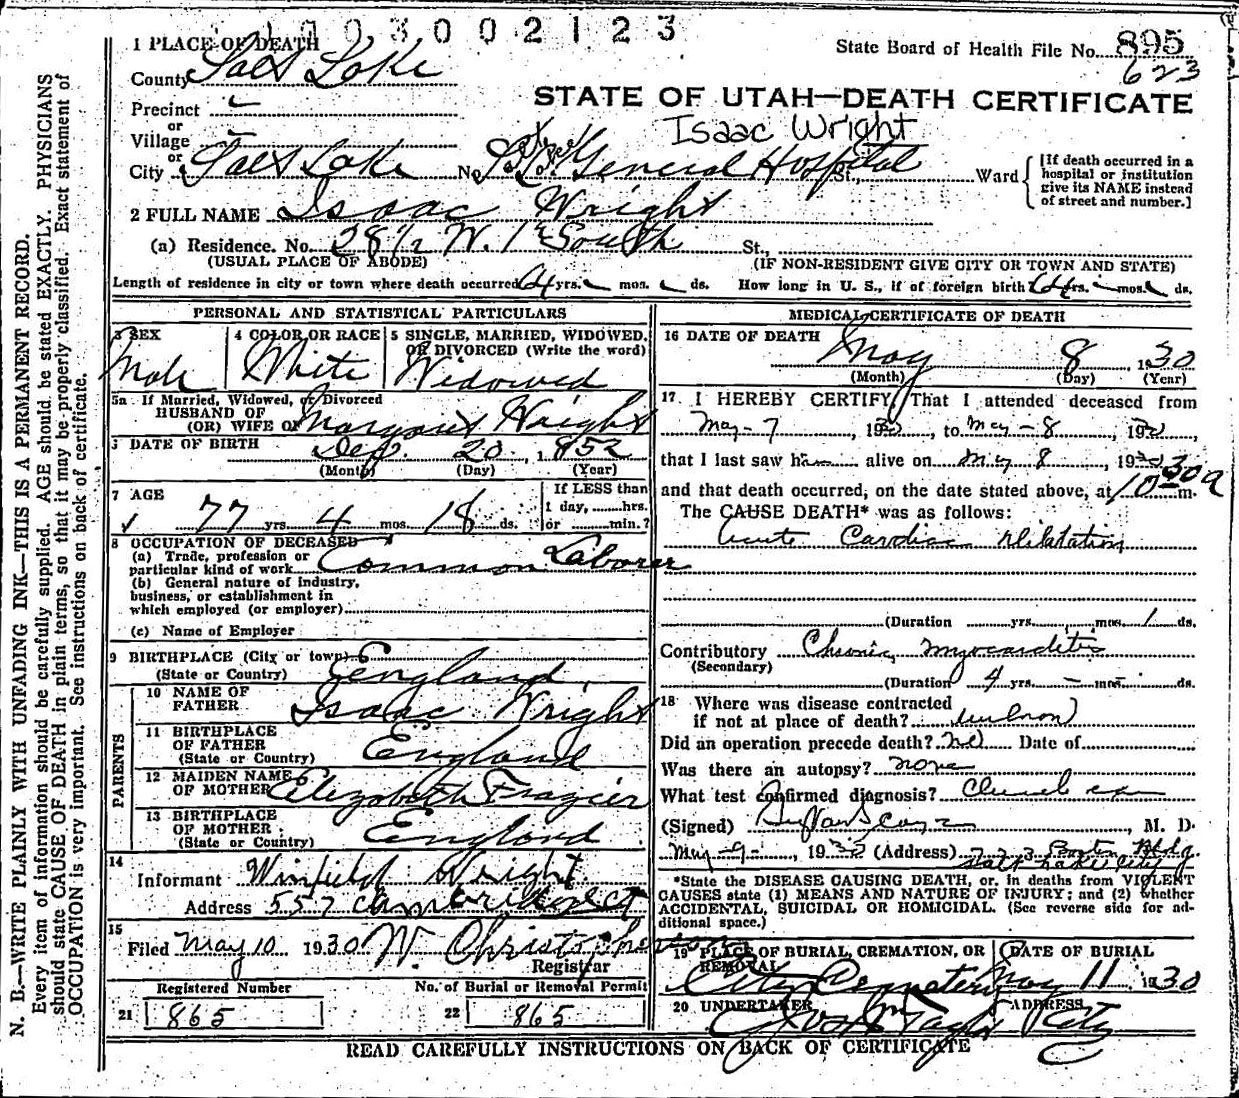 003002123
1 PLACE OF DEATH
State Board of Health File No. 895
County Salt Lake
623
Precinct
STATE OF UTAH—DEATH CERTIFICATE
or
Village
Isaac Wright
or
City Salt Lake No. Salt Lake General Hospital St., Ward
[If death occurred in a hospital or institution give its NAME instead of street and number.]
2 FULL NAME Isaac Wright
(a) Residence. No. 38 1/2 W. 1st South St.,
(USUAL PLACE OF ABODE) (IF NON-RESIDENT GIVE CITY OR TOWN AND STATE)
Length of residence in city or town where death occurred 64 yrs. mos. ds. How long in U. S., if of foreign birth? 64 yrs. mos. ds.
PERSONAL AND STATISTICAL PARTICULARS
3 SEX 4 COLOR OR RACE 5 SINGLE, MARRIED, WIDOWED, OR DIVORCED (Write the word)
Male White Widowed
5a If Married, Widowed, or Divorced
HUSBAND OF
(OR) WIFE OF Margaret Wright
DATE OF BIRTH Dec. 20, 1852
(Month) (Day) (Year)
7 AGE If LESS than
1 day, hrs.
77 yrs. 4 mos. 18 ds. or min.?
8 OCCUPATION OF DECEASED
(a) Trade, profession or
particular kind of work Common Laborer
(b) General nature of industry,
business, or establishment in
which employed (or employer)
(c) Name of Employer
9 BIRTHPLACE (City or town)
(State or Country) England
PARENTS
10 NAME OF
FATHER Isaac Wright
11 BIRTHPLACE
OF FATHER England
(State or Country)
12 MAIDEN NAME
OF MOTHER Elizabeth Frazier
13 BIRTHPLACE
OF MOTHER England
(State or Country)
14
Informant Winfield Wright
Address 557
15
Filed May 10 1930 W. Christopherson
Registrar
Registered Number No. of Burial or Removal Permit
21 865 22 865
MEDICAL CERTIFICATE OF DEATH
16 DATE OF DEATH
May 8 1930
(Month) (Day) (Year)
17 I HEREBY CERTIFY, That I attended deceased from
May - 7, 1930, to May - 8, 1930,
that I last saw him alive on May 8, 1930
and that death occurred, on the date stated above, at 10 30 a m.
The CAUSE DEATH* was as follows:
Acute Cardiac Dilatation
(Duration yrs. mos. 1 ds.
Contributory Chronic Myocarditis
(Secondary)
(Duration 4 yrs. - mos. - ds.
18 Where was disease contracted
if not at place of death? unknown
Did an operation precede death? no Date of
Was there an autopsy? none
What test confirmed diagnosis? Clinical exam
(Signed) , M. D.
May - 9 - , 1930 (Address) Boston Bldg.
Salt Lake City
*State the DISEASE CAUSING DEATH, or, in deaths from VIOLENT
CAUSES state (1) MEANS AND NATURE OF INJURY; and (2) whether
ACCIDENTAL, SUICIDAL OR HOMICIDAL. (See reverse side for ad-
ditional space.)
19 PLACE OF BURIAL, CREMATION, OR REMOVAL DATE OF BURIAL
City Cemetery May 11 1930
20 UNDERTAKER ADDRESS
Taylor City
READ CAREFULLY INSTRUCTIONS ON BACK OF CERTIFICATE
N. B.—WRITE PLAINLY WITH UNFADING INK—THIS IS A PERMANENT RECORD.
Every item of information should be carefully supplied. AGE should be stated EXACTLY. PHYSICIANS
should state CAUSE OF DEATH in plain terms, so that it may be properly classified. Exact statement of
OCCUPATION is very important. See instructions on back of certificate.